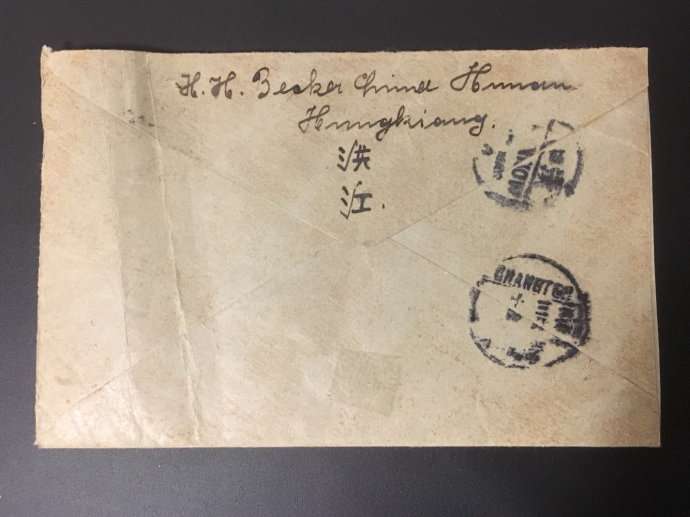 H. H. Becker China Hunan
Hungkiang.
洪
江.
CHANGTEH